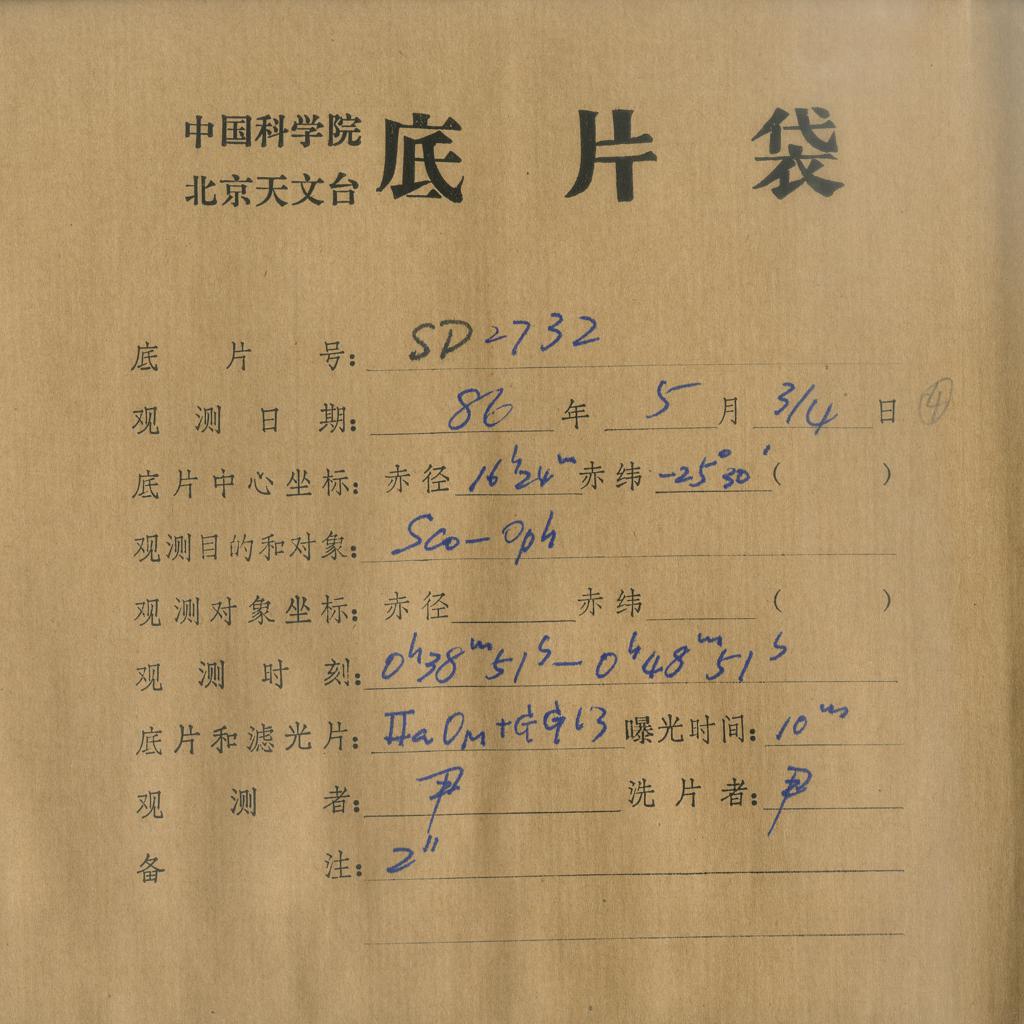 中国科学院
北京天文台
底片袋
底片号: SD2732
观测日期: 86年5月3/4日 ④
底片中心坐标: 赤径16ʰ24ᵐ赤纬-25°30′( )
观测目的和对象: Sco-Oph
观测对象坐标: 赤径 赤纬 ( )
观测时刻: 0ʰ38ᵐ51ˢ-0ʰ48ᵐ51ˢ
底片和滤光片: IIaOM+GG13 曝光时间: 10ᵐ
观测者: 尹 洗片者: 尹
备注: 2"